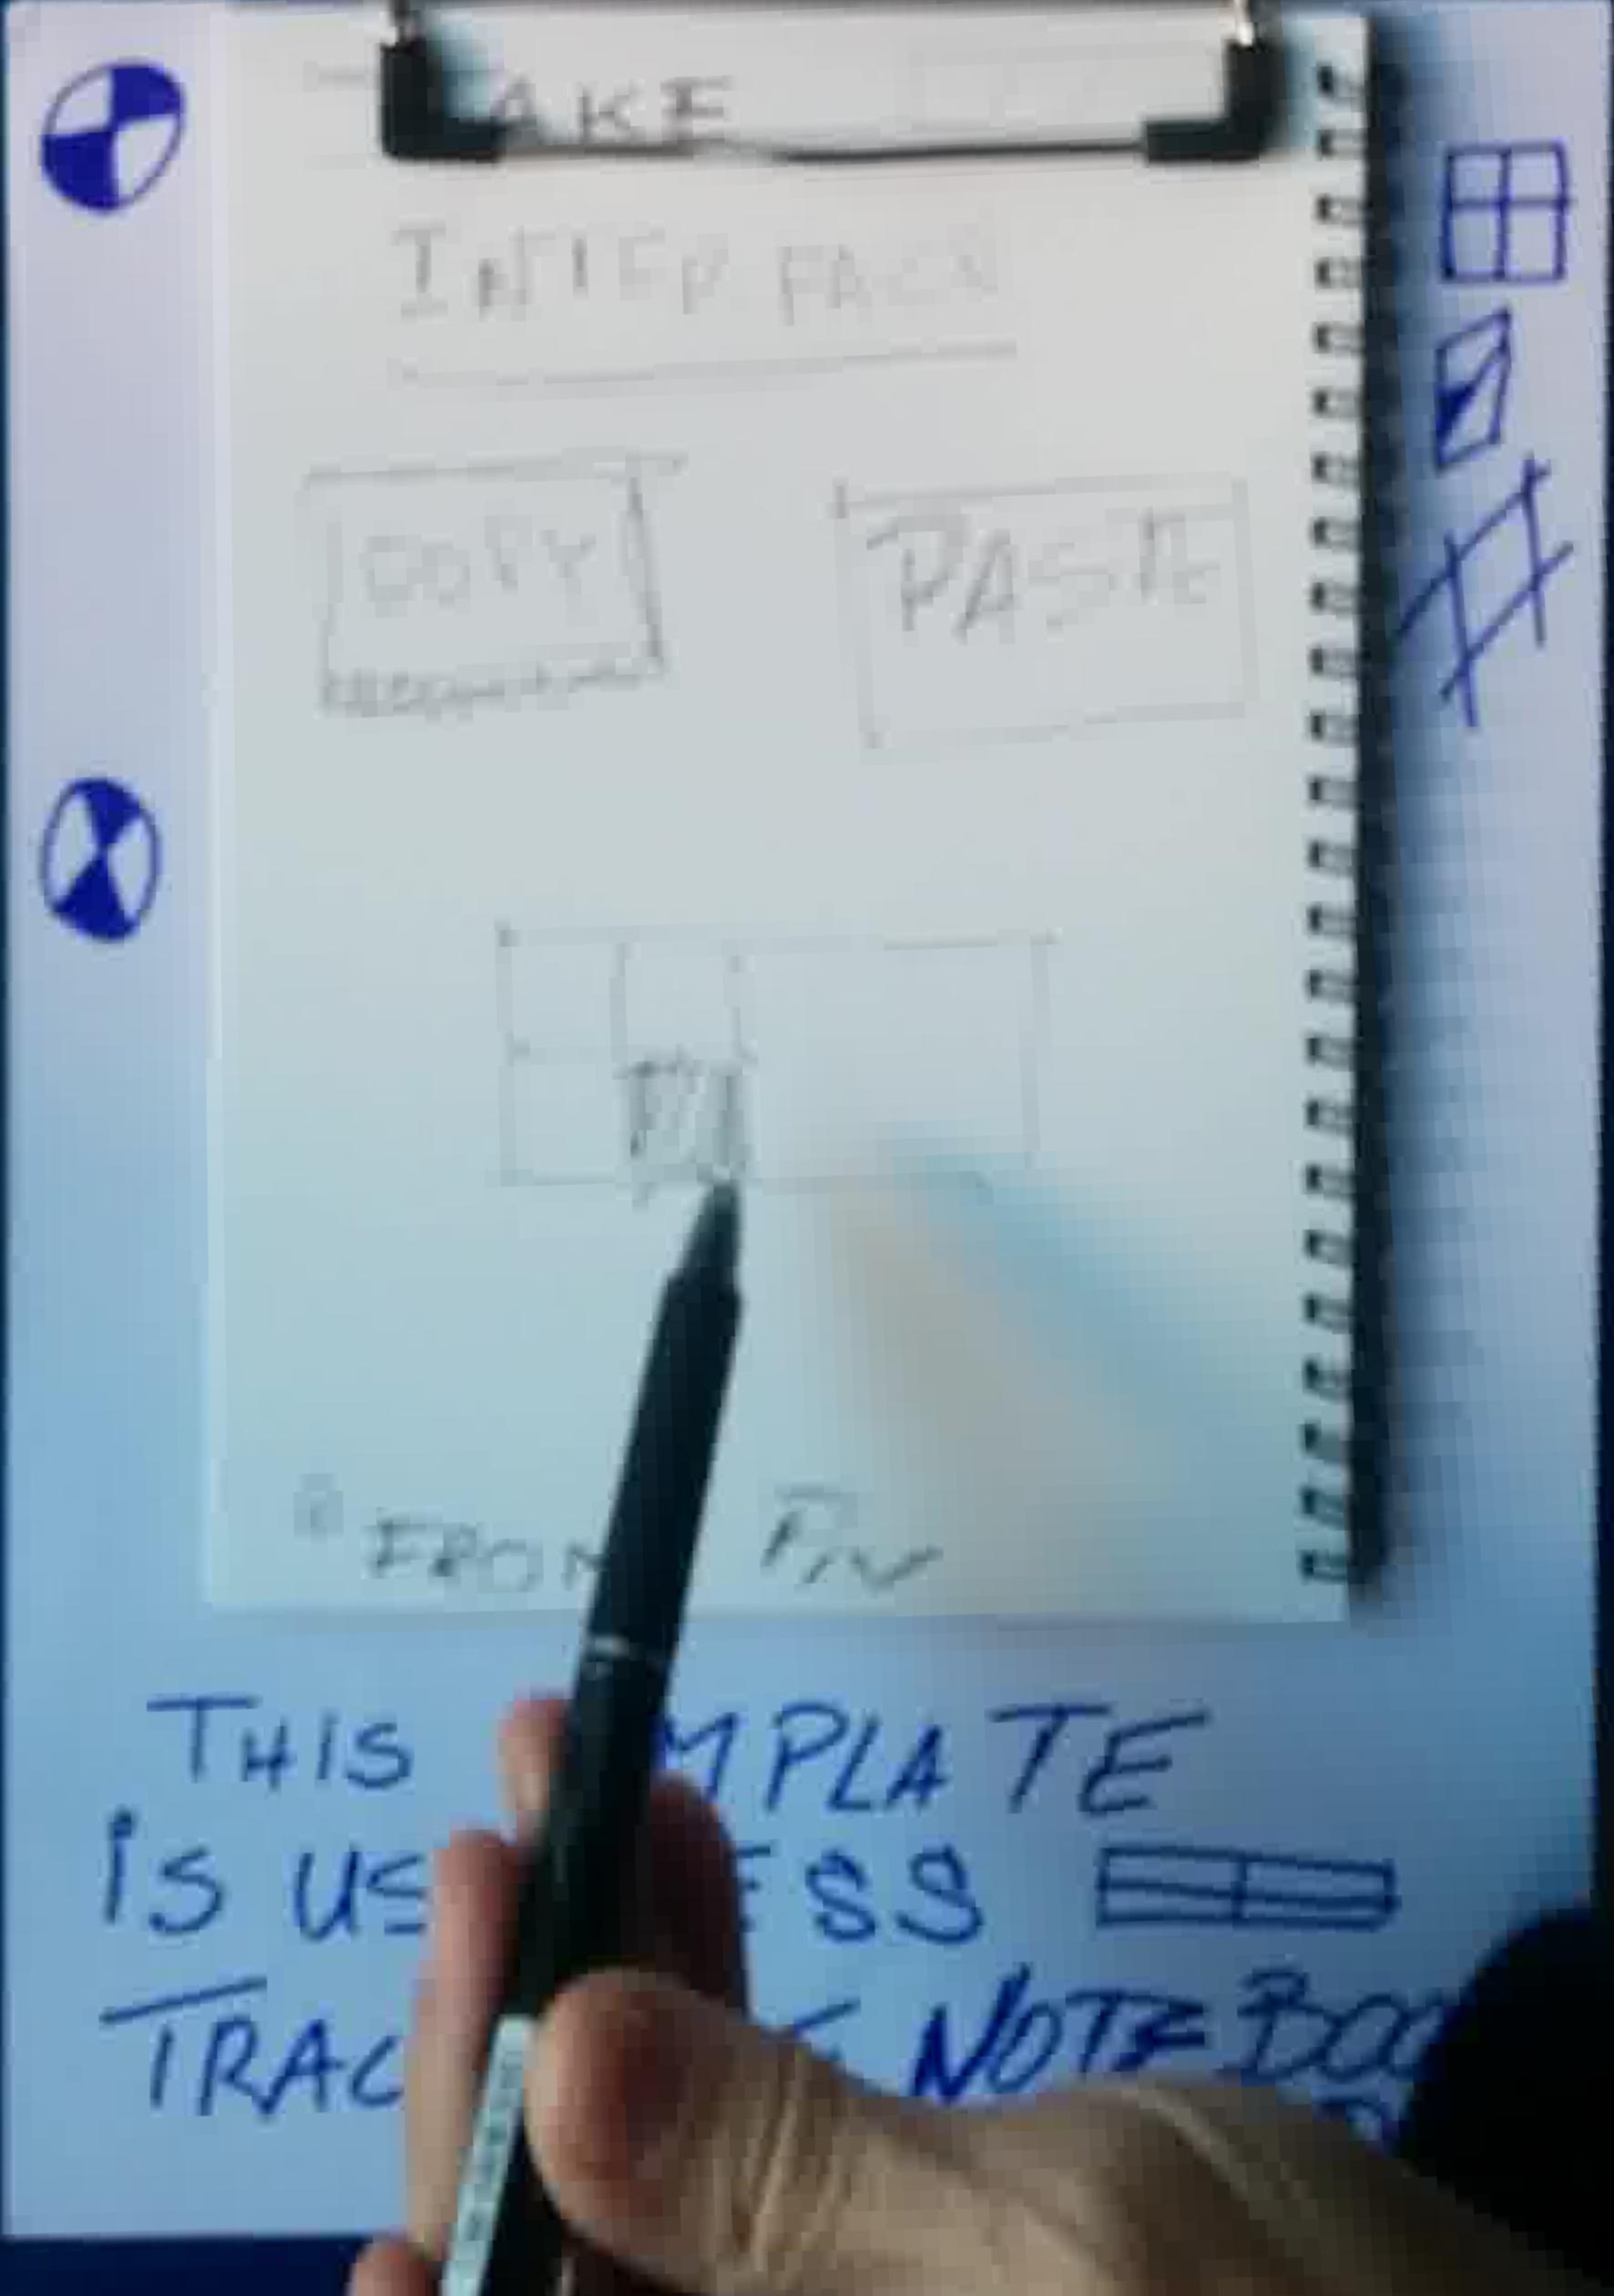 AKE
INTERFACE
COPY PASTE
FROM PIN
THIS MPLATE
is US ESS
TRAC NOTEBOO